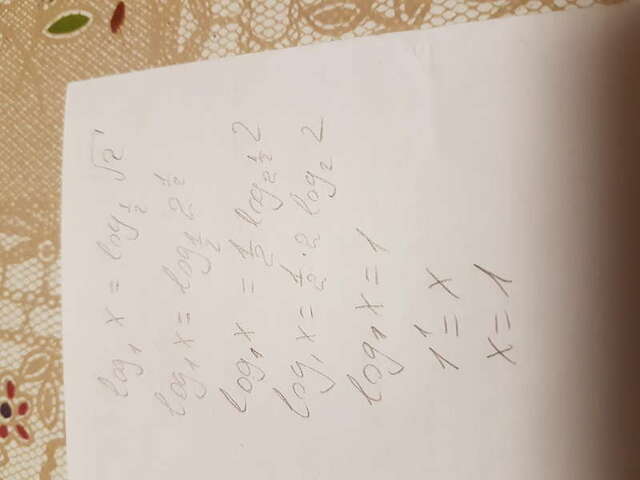 log₁ x = log_{1/2} √2
log₁ x = log_{1/2} 2^{1/2}
log₁ x = 1/2 log_{2^{1/2}} 2
log₁ x = 1/2 · 2 log₂ 2
log₁ x = 1
1¹ = x
x = 1